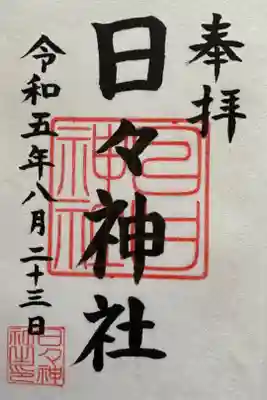 奉拝
日々神社
令和五年八月二十三日
日々神社